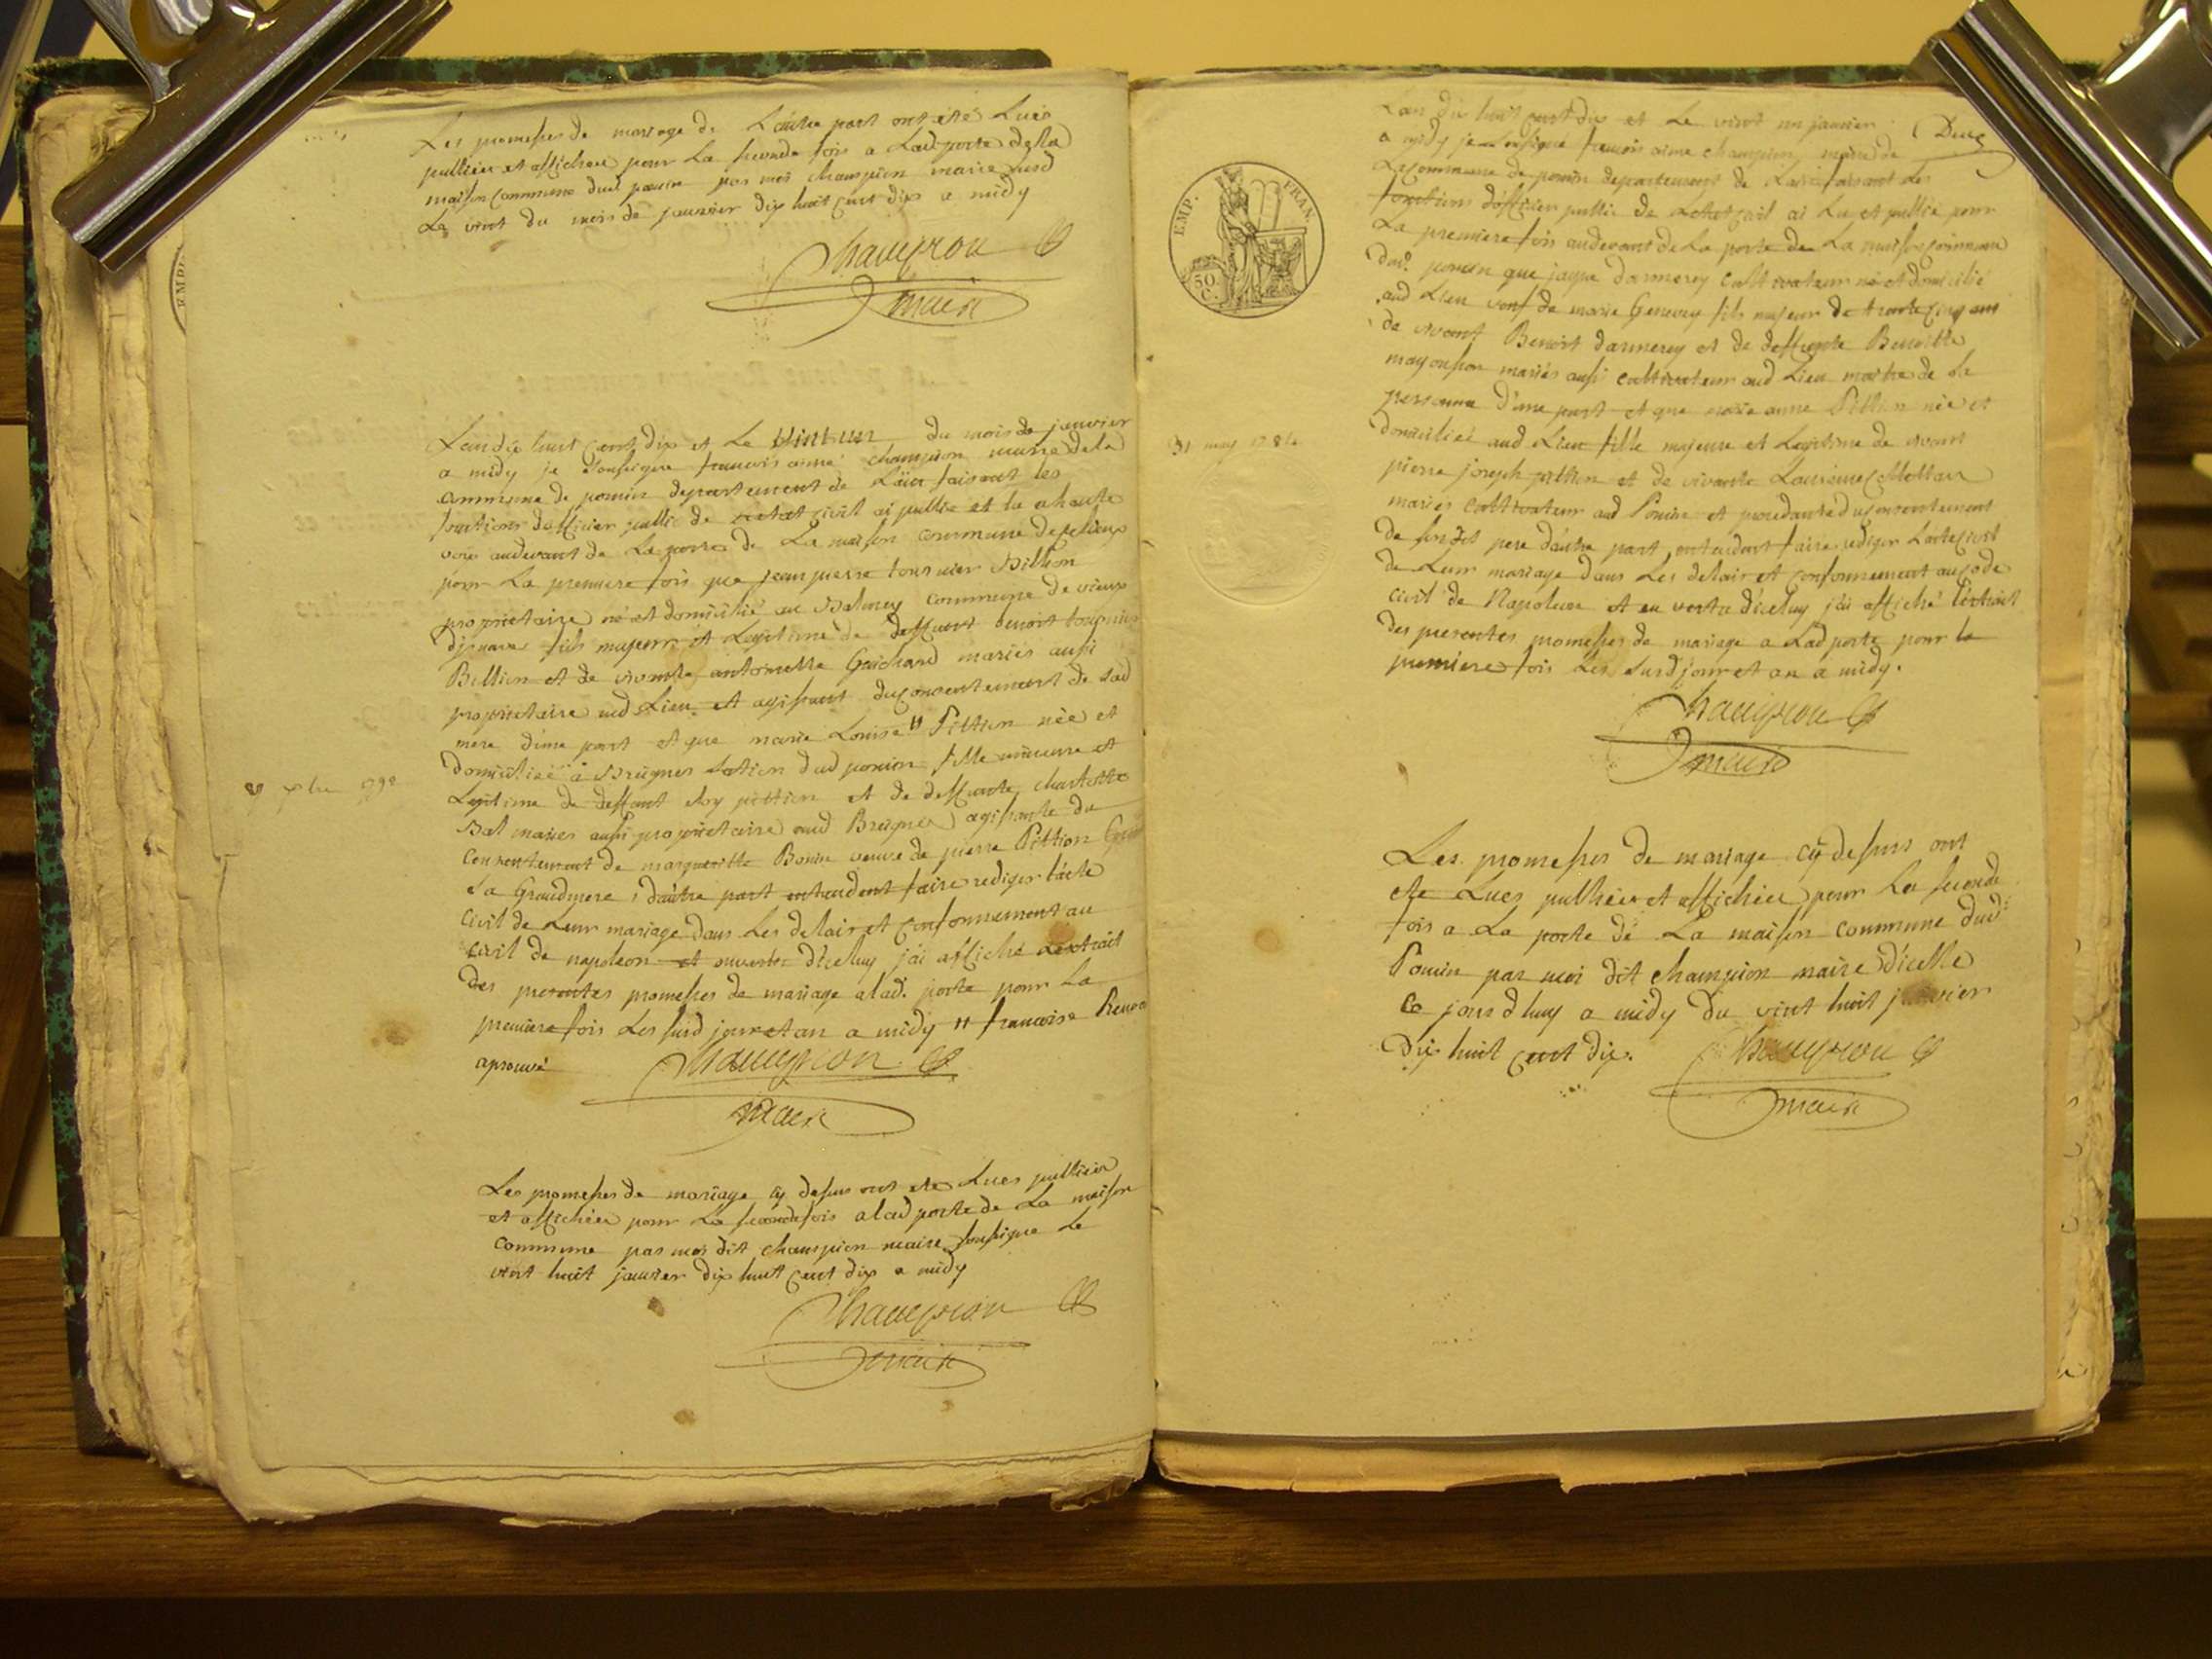 Les promesses de mariage de L'autre part ont été Lues
publiées et affichées pour La seconde fois a Lad porte de la
maison Commune dud poncin par moi champion maire susd
Le vint du mois de janvier dix huit cent dix a midy
Champion
maire
L'an dix huit cent dix et Le vint un du mois de janvier
a midy je soussigné francois aimé champion maire de la
commune de poncin departement de L'ain faisant les
fonctions d'officier public de L'etat civil ai publié et lu a haute
voix audevant de La porte de La maison commune
pour La premiere fois que jean pierre tournier Billion
proprietaire né et domicilié au Balmey commune de vieux
d'izenave fils majeur et Legitime de deffunt benoit tournier
Billion et de vivante antoinette Guichard mariés aussi
proprietaire aud Lieu et agissant du consentement de sad
mere d'une part et que marie Louise " Pittion née et
domiciliée a Breignes section dud poncin fille mineure et
Legitime de deffunt pittion et de deffunte charlotte
Bal mariés aussi proprietaire aud Breignes agissante du
Consentement de margueritte Bonin veuve de pierre Pittion
sa Grandmere, d'autre part entendent faire rediger l'acte
civil de Leur mariage dans Les delais et conformement au
civil de napoleon et en vertu d'iceluy j'ai affiché L'extrait
des presentes promesses de mariage a lad. porte pour La
premiere fois Les susd jour et an a midy " francoise
aprouvé
Champion
maire
Les promesses de mariage cy dessus ont été Lues publiées
et affichées pour La seconde fois a lad porte de La maison
Commune par moi dit champion maire soussigné Le
vint huit janvier dix huit cent dix a midy
Champion
maire
EMP. FRAN.
50 C.
31 may 1784
L'an dix huit cent dix et Le vint un janvier
a midy je soussigné francois aimé champion maire de
La commune de poncin departement de L'ain faisant Les
fonctions d'officier public de L'etat civil ai Lu et publié pour
La premiere fois audevant de La porte de La maison commune
dud. poncin que jaque darmerey cultivateur né et domicilié
aud Lieu veuf de marie Genevey fils majeur de trante cinq ans
de vivant Benoit darmerey et de deffunte Benoitte
mariés aussi cultivateur aud Lieu maitre de sa
personne d'une part et que marie anne Pittion née et
domiciliée aud Lieu fille majeure et Legitime de vivant
pierre joseph pittion et de vivante
mariés cultivateur aud Poncin et procedante du consentement
de sesdits pere d'autre part, entendent faire rediger L'acte civil
de Leur mariage dans Les delais et conformement au code
civil de Napoleon et en vertu d'iceluy j'ai affiché l'extrait
des presentes promesses de mariage a Lad porte pour la
premiere fois Les susd jour et an a midy.
Champion
maire
Les promesses de mariage cy dessus ont
été Lues publiées et affichées pour La seconde
fois a La porte de La maison commune dud
Poncin par moi dit champion maire d'icelle
Ce jourdhuy a midy du vint huit janvier
Dix huit cent dix.
Champion
maire